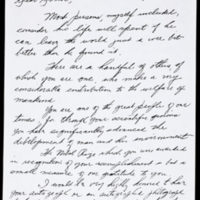 "Most persons, myself included,
consider his life well spent if he
can leave the world just a wee bit
better than he found it.
There are a handful of others of
which you are one, who make a very
considerable contribution to the welfare of
mankind.
You are one of the great people of our
times. In through your scientific genius
you have significantly advanced the
development of man and his environment.
The Nobel Prize which you were awarded
in recognition of your accomplishment is but a
small measure of our gratitude to you.
I would be very highly honored to have
your autograph or an autographed photograph